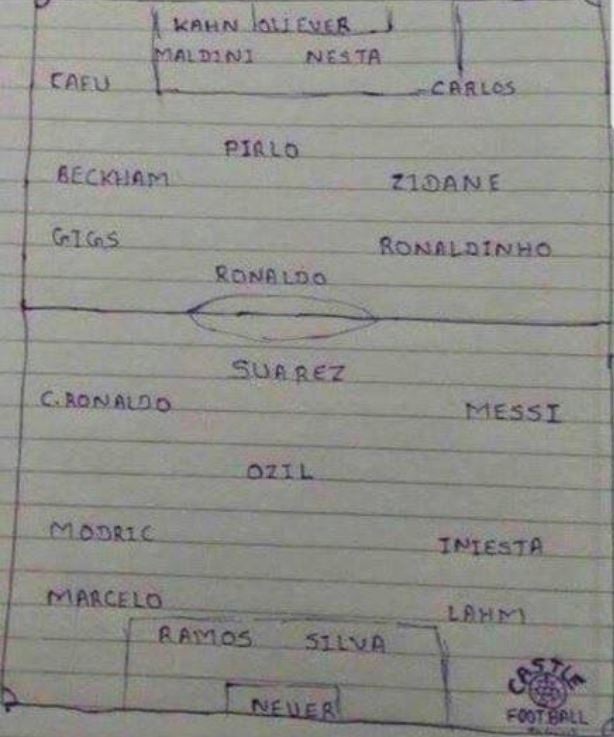 KAHN OLIEVER
MALDINI NESTA
CAFU CARLOS
PIRLO
BECKHAM ZIDANE
GIGS RONALDINHO
RONALDO
SUAREZ
C.RONALDO MESSI
OZIL
MODRIC INIESTA
MARCELO LAHM
RAMOS SILVA
NEUER
CASTLE
FOOTBALL